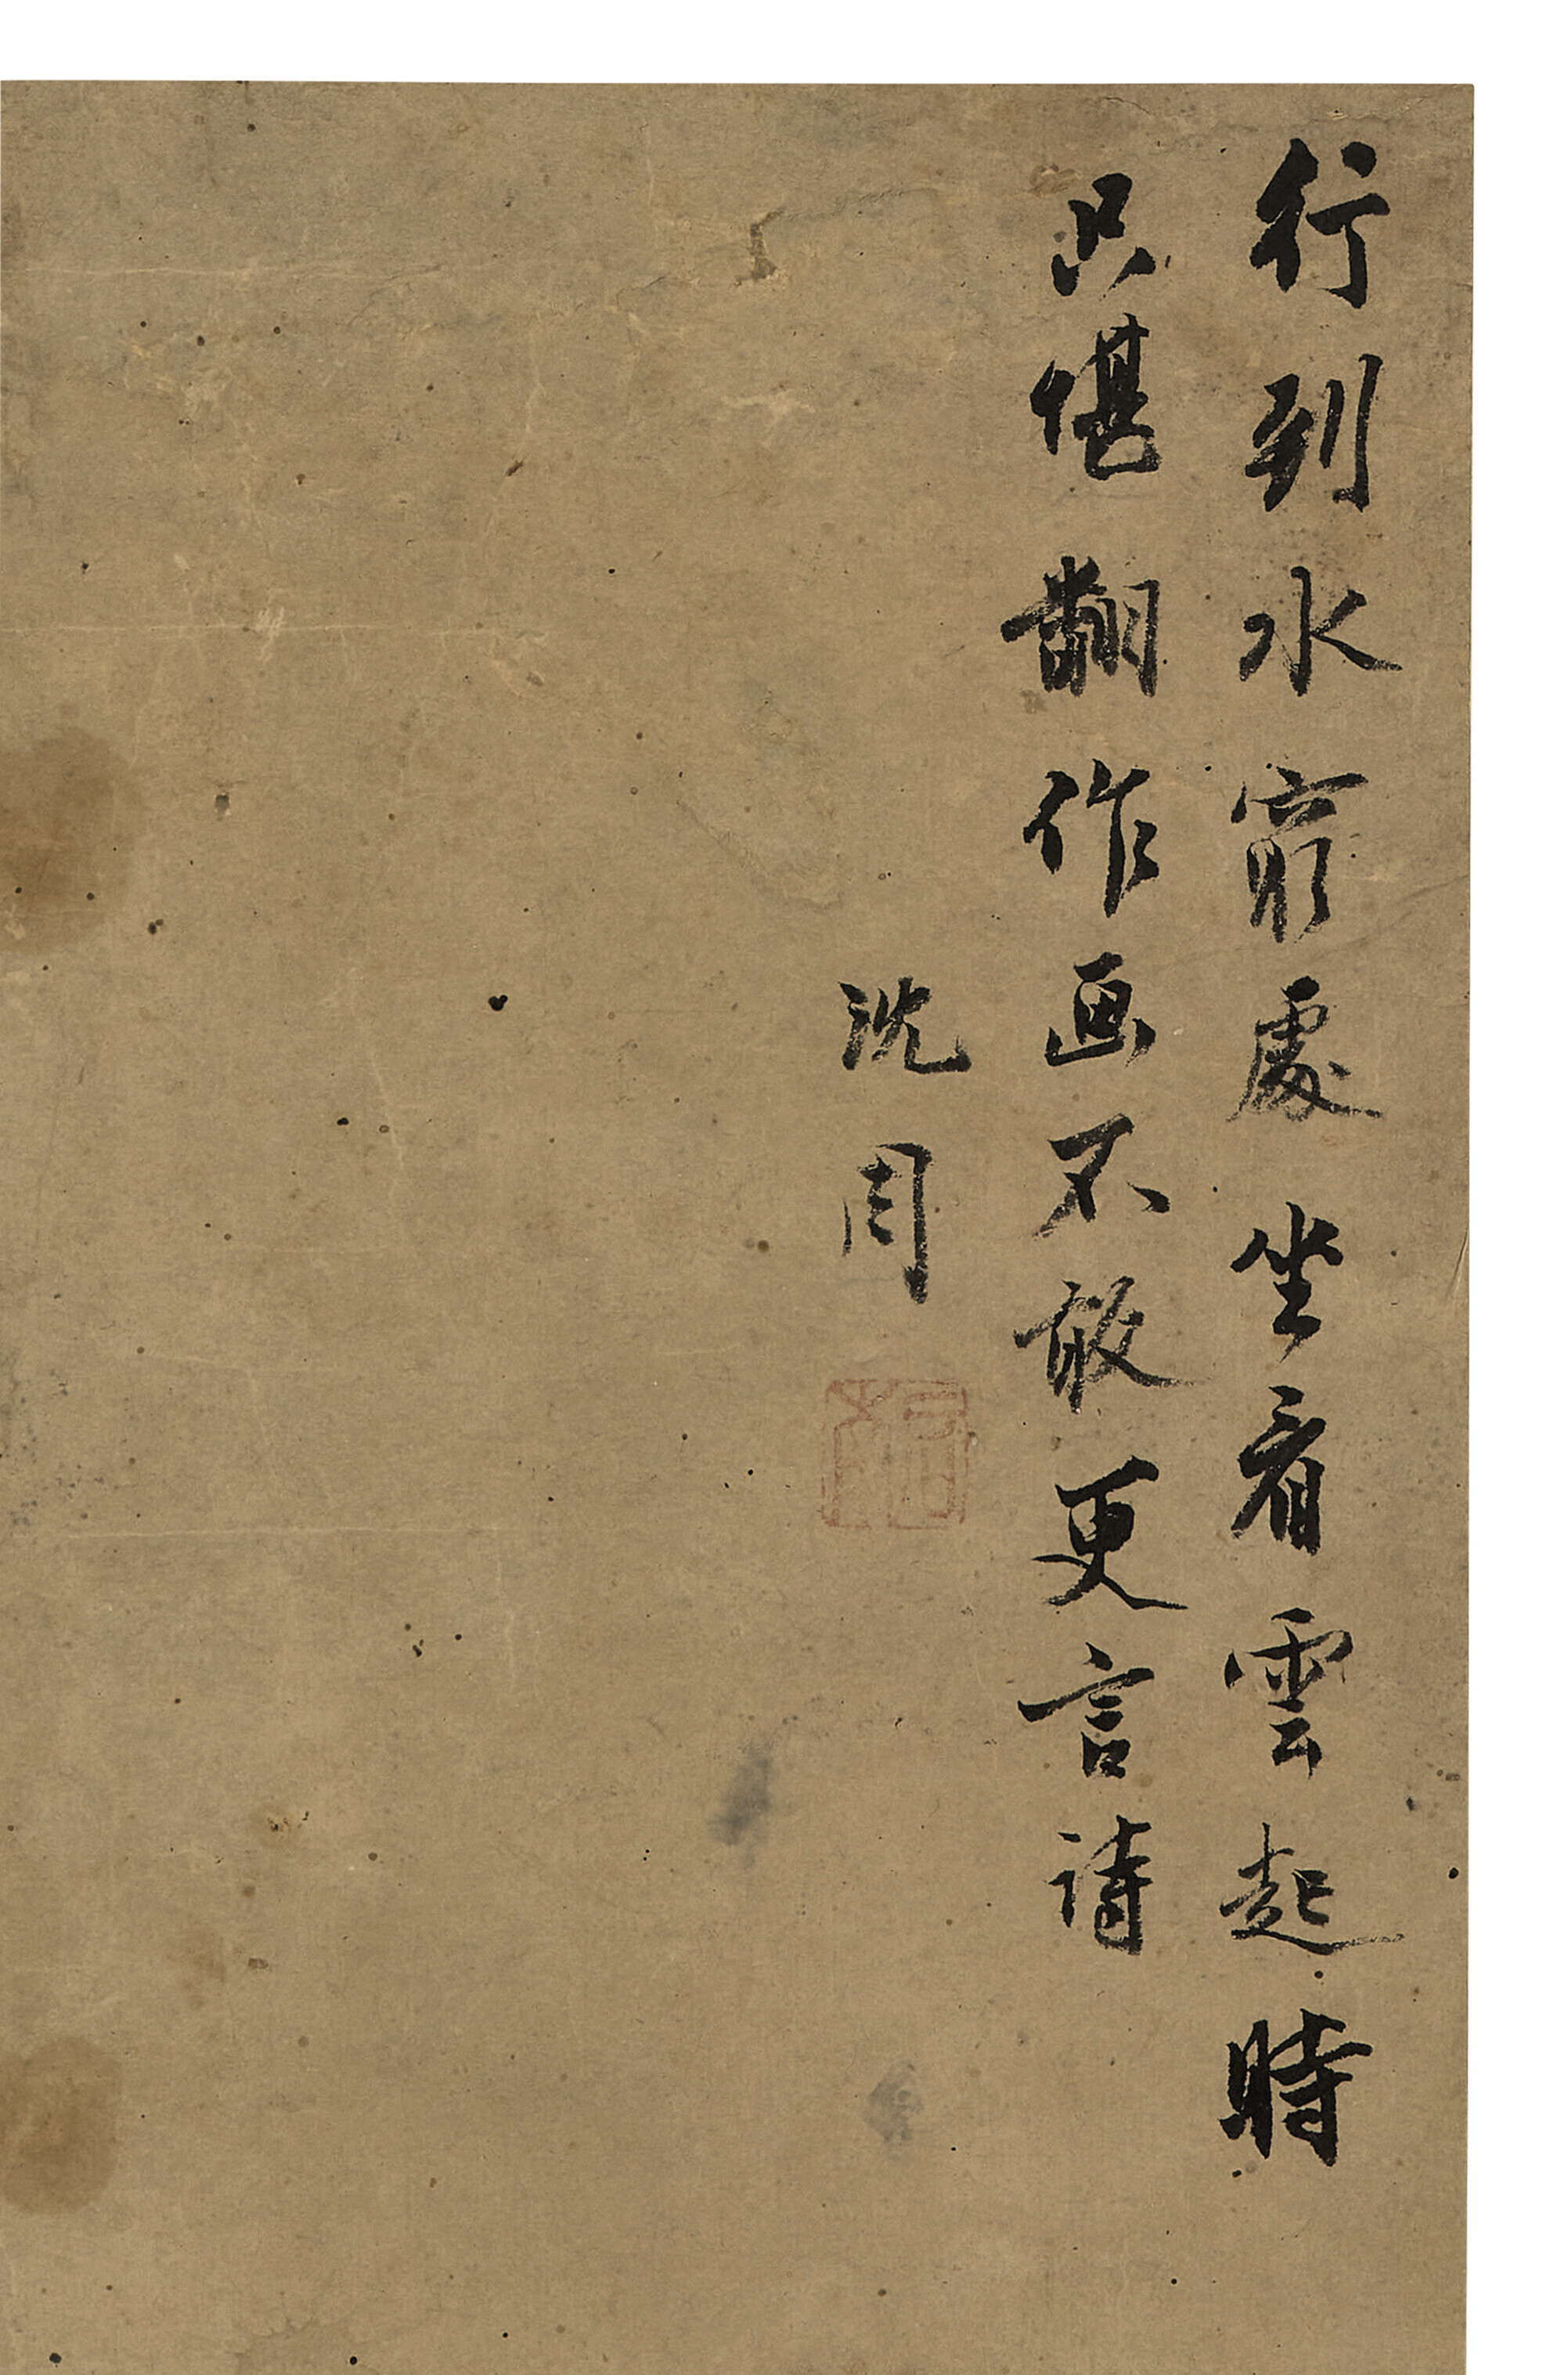 行到水窮處坐看雲起時
只堪翻作画不敢更言詩
沈周